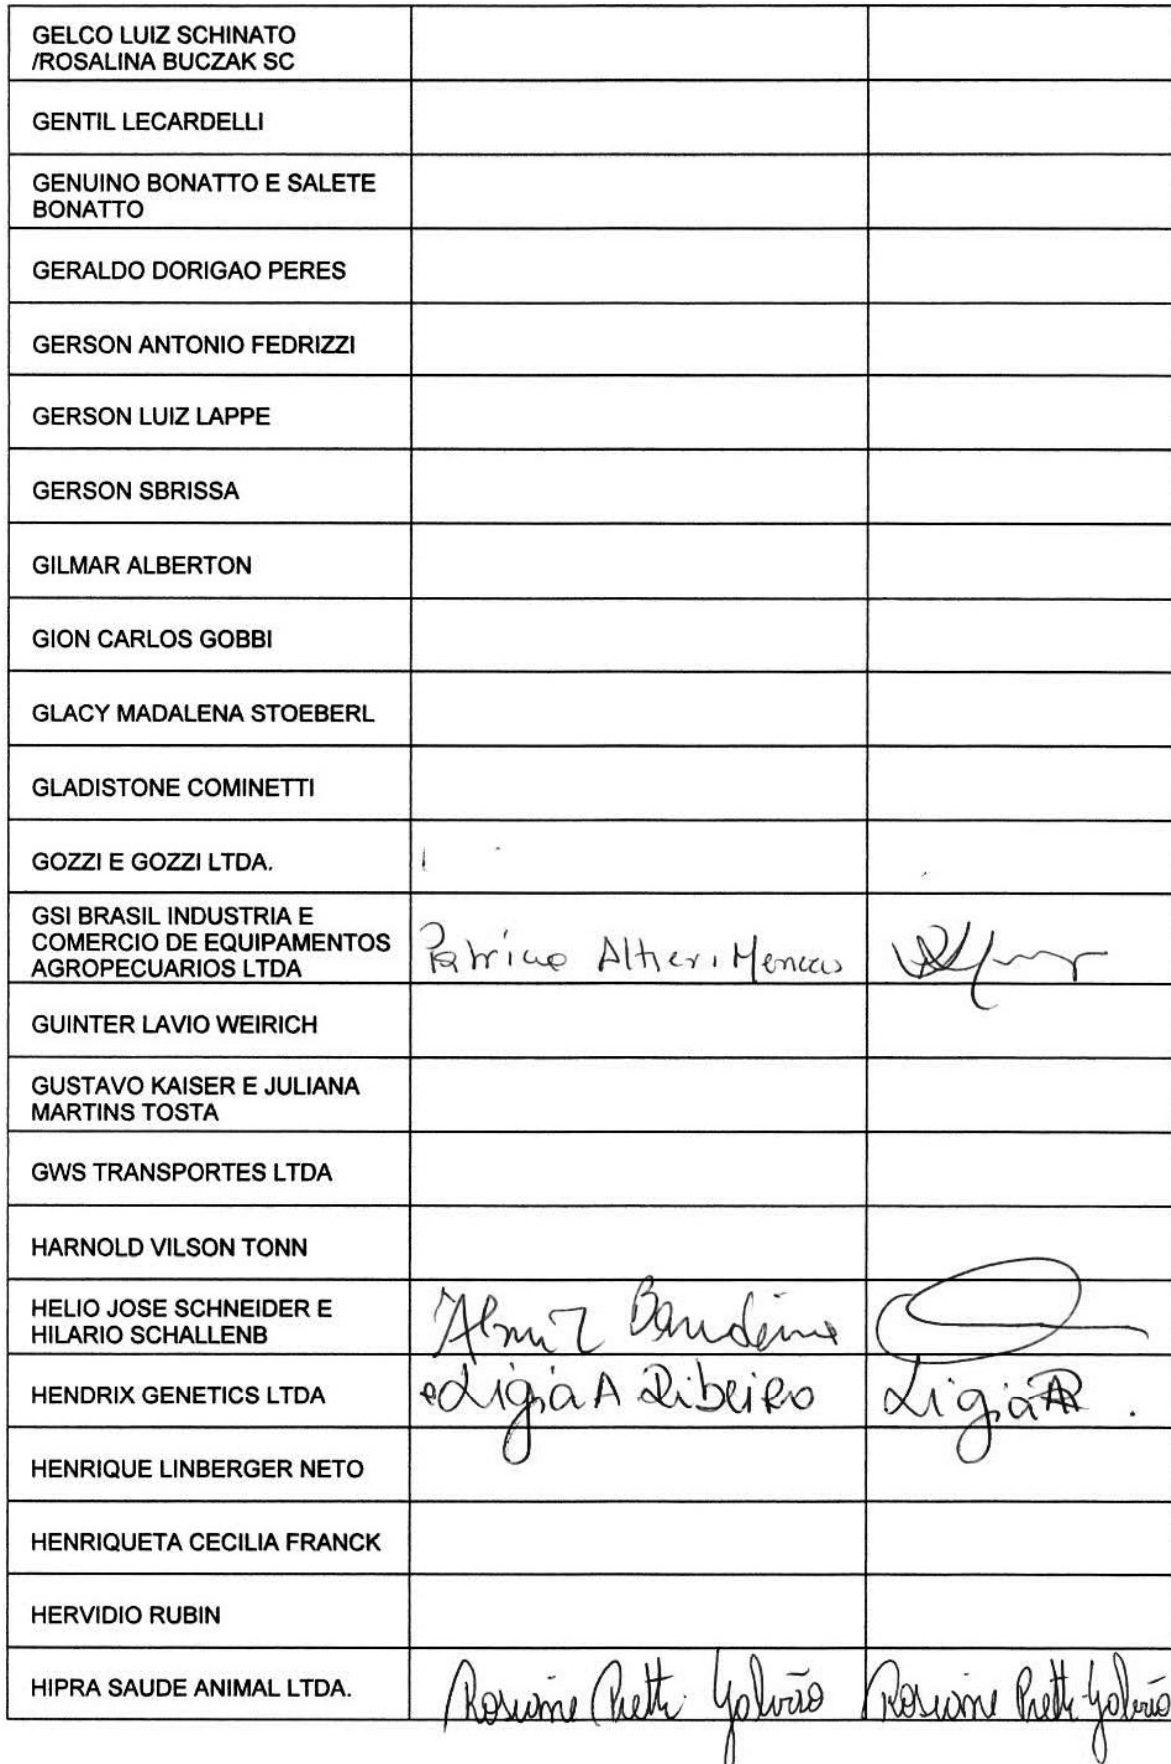 GELCO LUIZ SCHINATO
/ROSALINA BUCZAK SC
GENTIL LECARDELLI
GENUINO BONATTO E SALETE
BONATTO
GERALDO DORIGAO PERES
GERSON ANTONIO FEDRIZZI
GERSON LUIZ LAPPE
GERSON SBRISSA
GILMAR ALBERTON
GION CARLOS GOBBI
GLACY MADALENA STOEBERL
GLADISTONE COMINETTI
GOZZI E GOZZI LTDA.
GSI BRASIL INDUSTRIA E
COMERCIO DE EQUIPAMENTOS
AGROPECUARIOS LTDA
Altieri
GUINTER LAVIO WEIRICH
GUSTAVO KAISER E JULIANA
MARTINS TOSTA
GWS TRANSPORTES LTDA
HARNOLD VILSON TONN
HELIO JOSE SCHNEIDER E
HILARIO SCHALLENB
Almir
HENDRIX GENETICS LTDA
Ligia A Ribeiro Ligia
HENRIQUE LINBERGER NETO
HENRIQUETA CECILIA FRANCK
HERVIDIO RUBIN
HIPRA SAUDE ANIMAL LTDA.
Galvão Galvão